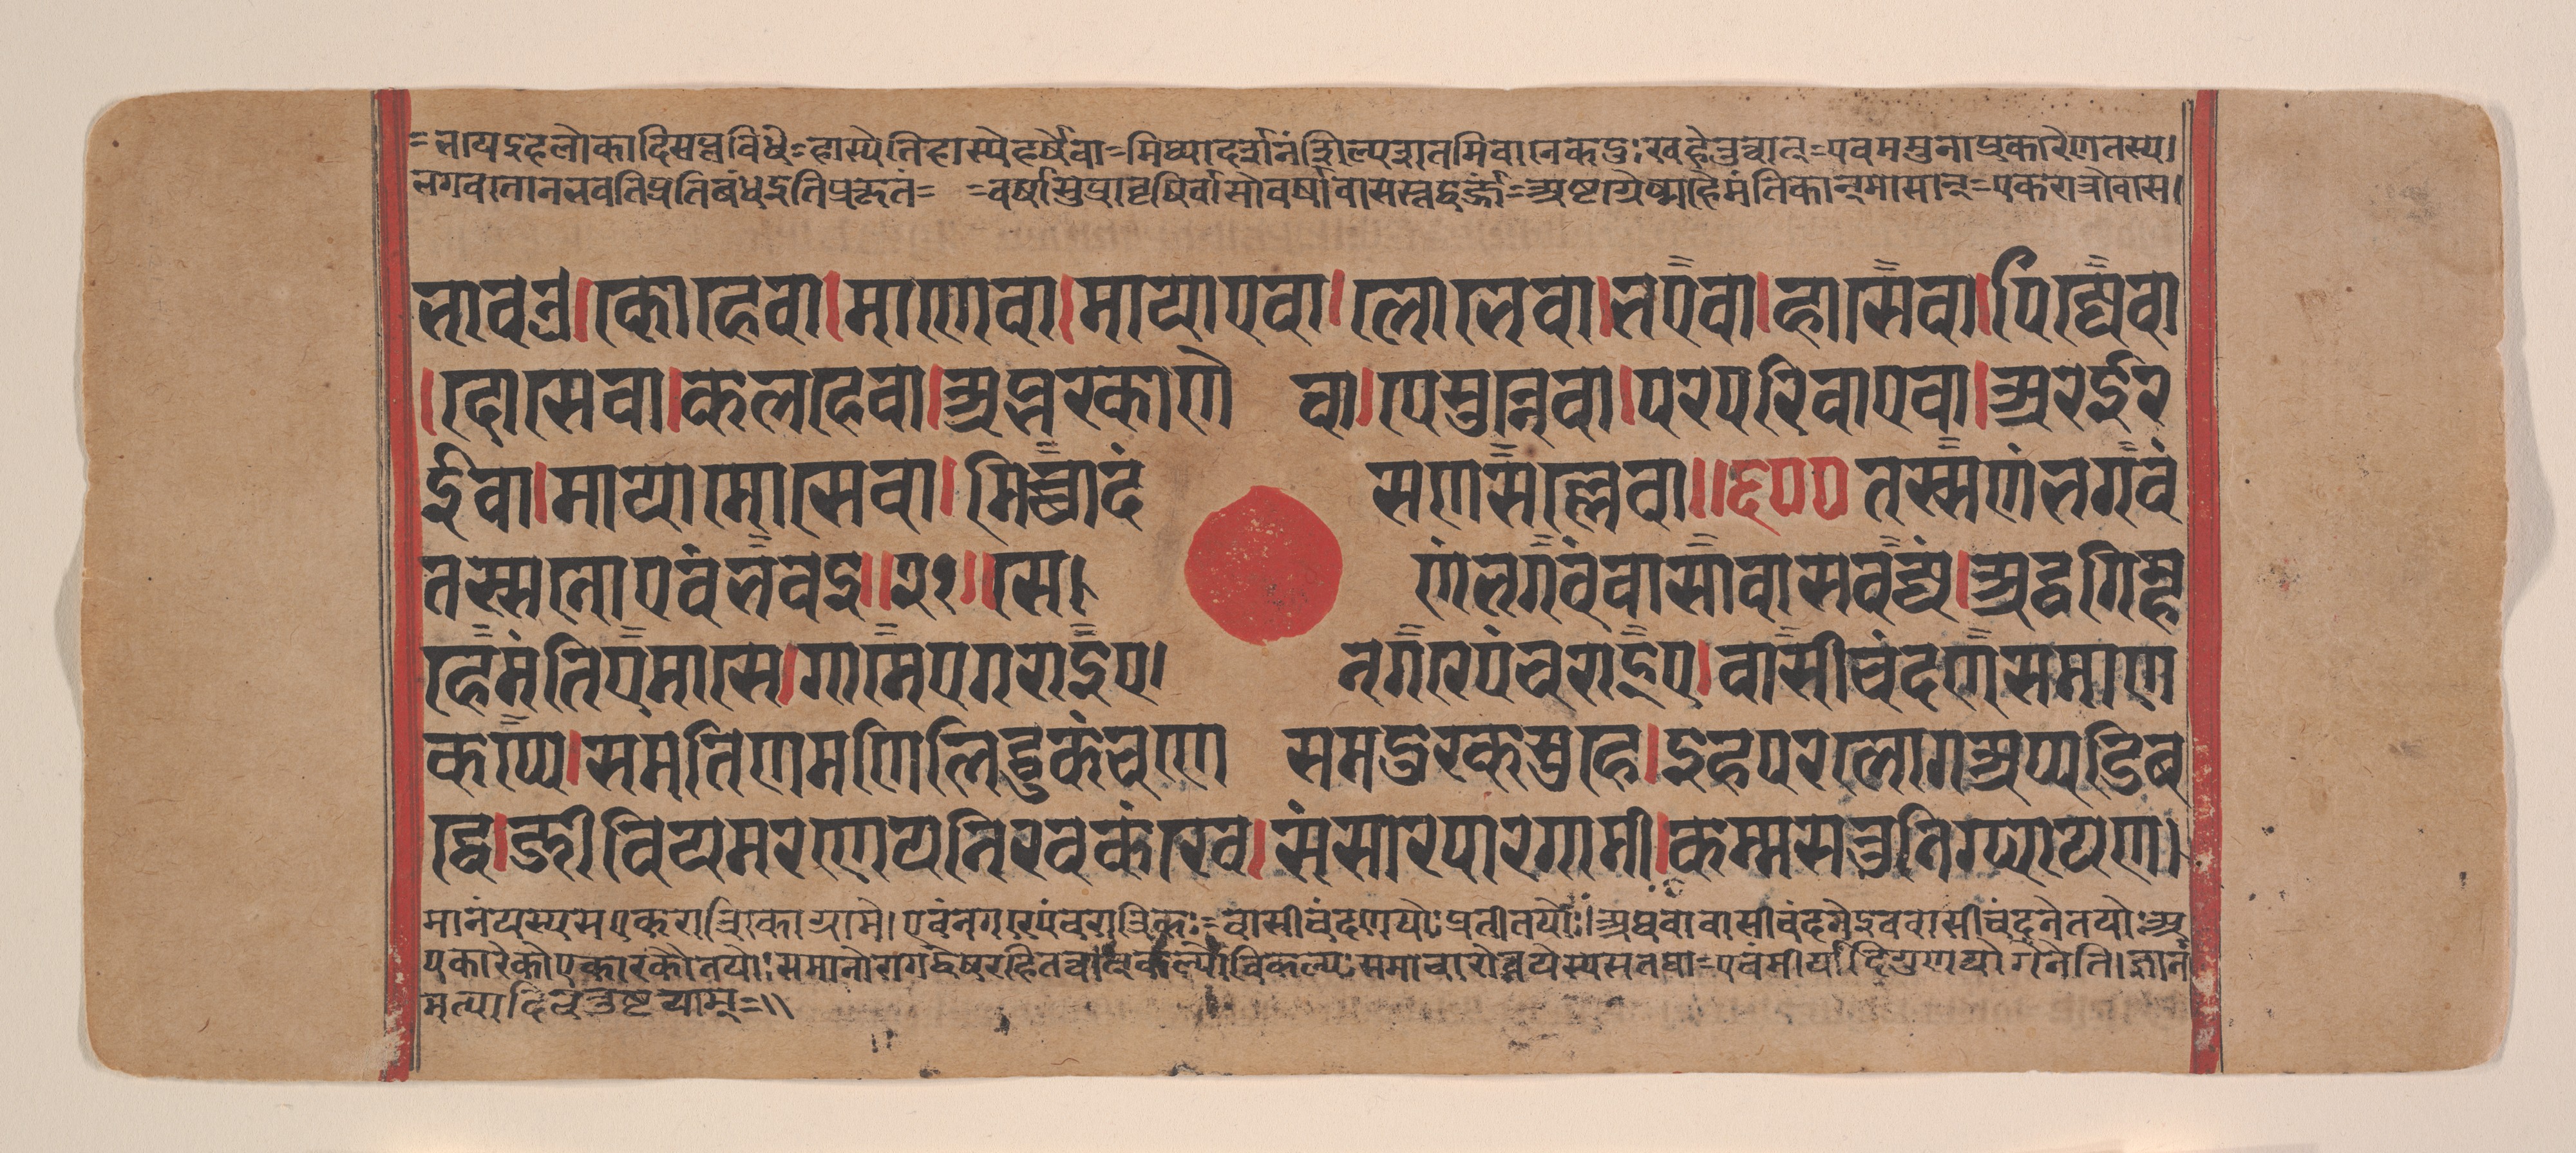 =भाय इहलोकादिसप्तविधे=हास्ये तिहास्ये हर्षे वा=मिथ्यादर्शनं शल्यशतमिवानेकदुःखहेतुत्वात्=एवममुना प्रकारेण तस्य।
भगवतो न भवति प्रतिबंध इति प्रकृतं= =वर्षासु प्रावृषि र्वासो वर्षावासस्तद्वर्ज्जं=अष्टा ग्रेष्म हैमंतिकान् मासान्=एकरात्रो वास।
भावउ।कोहे वा।माणे वा।मायाए वा।लोभे वा।भए वा।हासे वा।पिज्जे वा
।दोसे वा।कलहे वा।अप्भरकाणे वा।पेसुन्ने वा।परपरिवाए वा।अरइर
ई वा।मायामोसे वा।मिच्छादंसणसल्ले वा॥६००तस्स णं भगवं
तस्स नो एवं भवइ॥२१॥से। णं भगवं वासावासवज्जं।अट्ठ गिम्ह
हेमंतिए मासे।गामे एगराइए। नगरे पंचराइए।वासीचंदणसमाण
कप्पे।समतिणमणिलिट्ठुकंचणे समदुरकसुहे।इहपरलोगअप्पडिब
द्धे।जीवियमरणे य निरवकंखे।संसारपारगामी।कम्मसत्तुनिग्घायण।
मानं यस्य स एकरात्रिको ग्रामे। एवं नगरे पंचरात्रिकः=वासीचंदणयोः प्रतीतयोः।अथवा वासीचंदने इव वासीचंदने तयोः अ
पकारकोपकारकौ तयोः समानो रागद्वेषरहितत्वात् कल्पो विकल्पः समाचारो वा यस्य स तथा=एवमीर्यादिगुणयोगेनेति।ज्ञानं
मत्यादिचतुष्टयाम्=॥